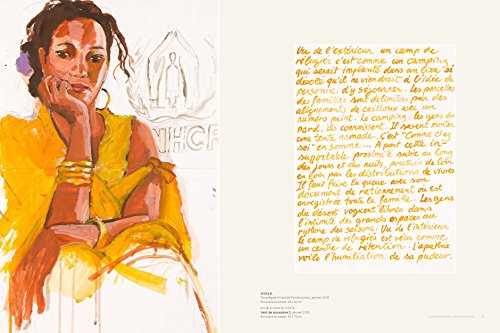 HCR
Vu de l'extérieur un camp de
réfugiés c'est comme un camping
qui serait implanté dans un lieu si
désolé qu'il ne viendrait à l'idée de
personne d'y séjourner. Les parcelles
des familles sont délimitées par des
alignements de cailloux avec un
numéro peint. Le camping, les gens du
Nord, ils connaissent. Ils savent monter
une tente nomade. C'est "Comme chez
soi" en somme... A part cette in-
supportable proximité subie au long
des jours et des nuits, ponctués de loin
en loin par les distributions de vivres
Il faut faire la queue avec son
document de rationnement où est
enregistrée toute la famille. Les gens
du désert voguent libres dans
l'intimité des grands espaces au
rythme des saisons. Vu de l'intérieur
le camp de réfugiés est vécu comme
un centre de rétention. L'apathie
voile l'humiliation de sa pudeur.